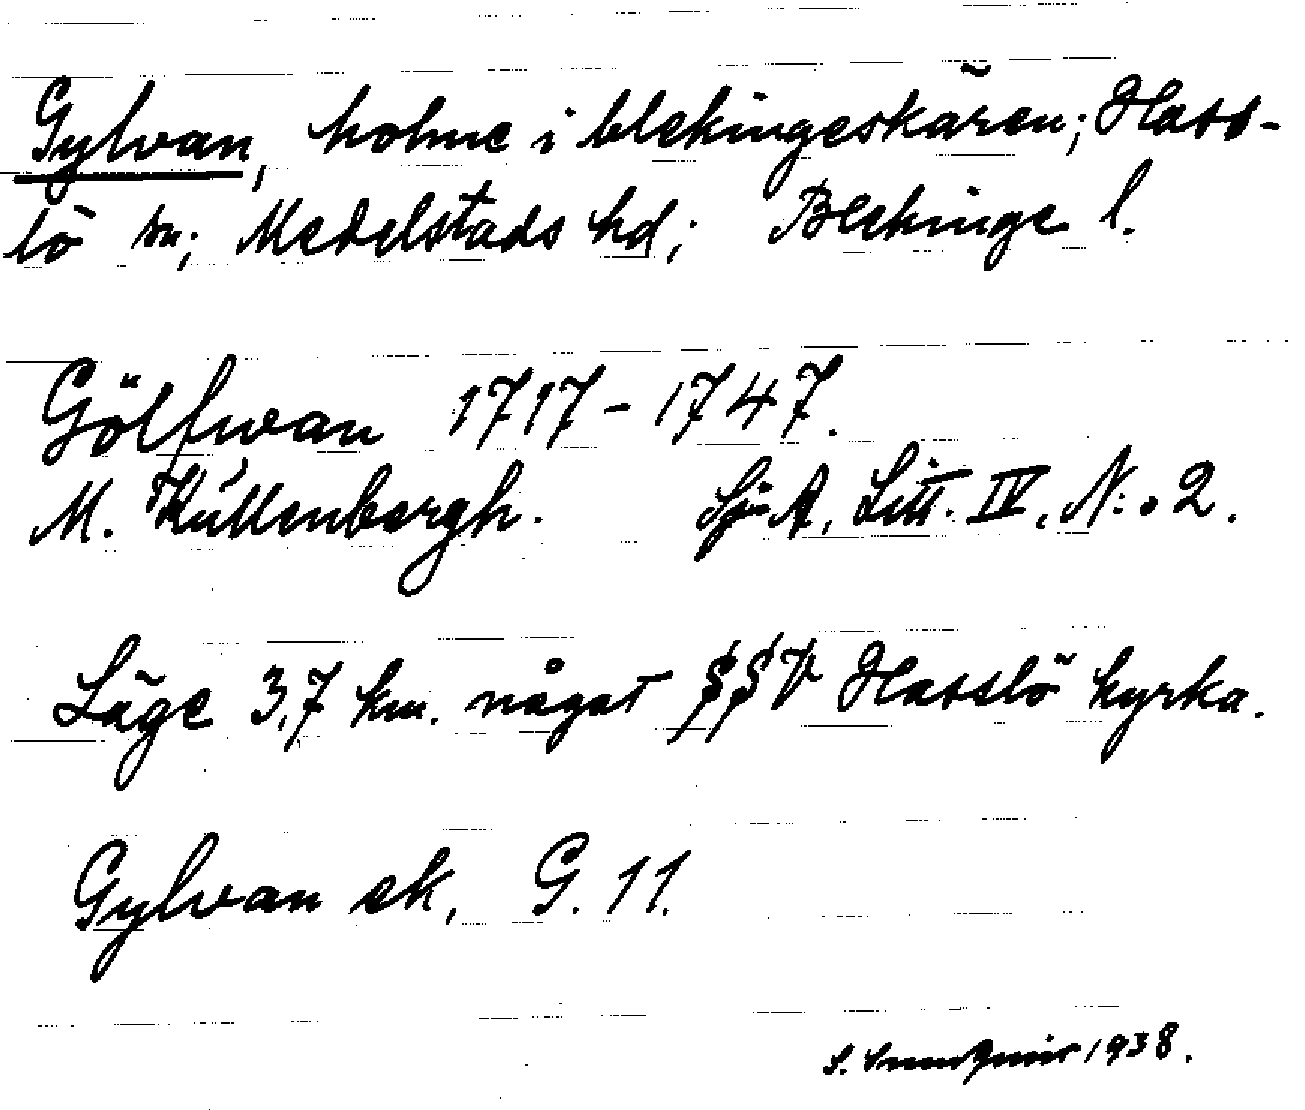 Gylvan, holme i blekingeskären; Hass-
lö sn; Medelstads hd; Blekinge l.
Gölfwan 1717-1747.
M. Küllenbergh. Sjö A, Litt. IV, N:o 2.
Läge 3,7 km. något SSV Hasslö kyrka.
Gylvan ek, G. 11.
S. 1938.